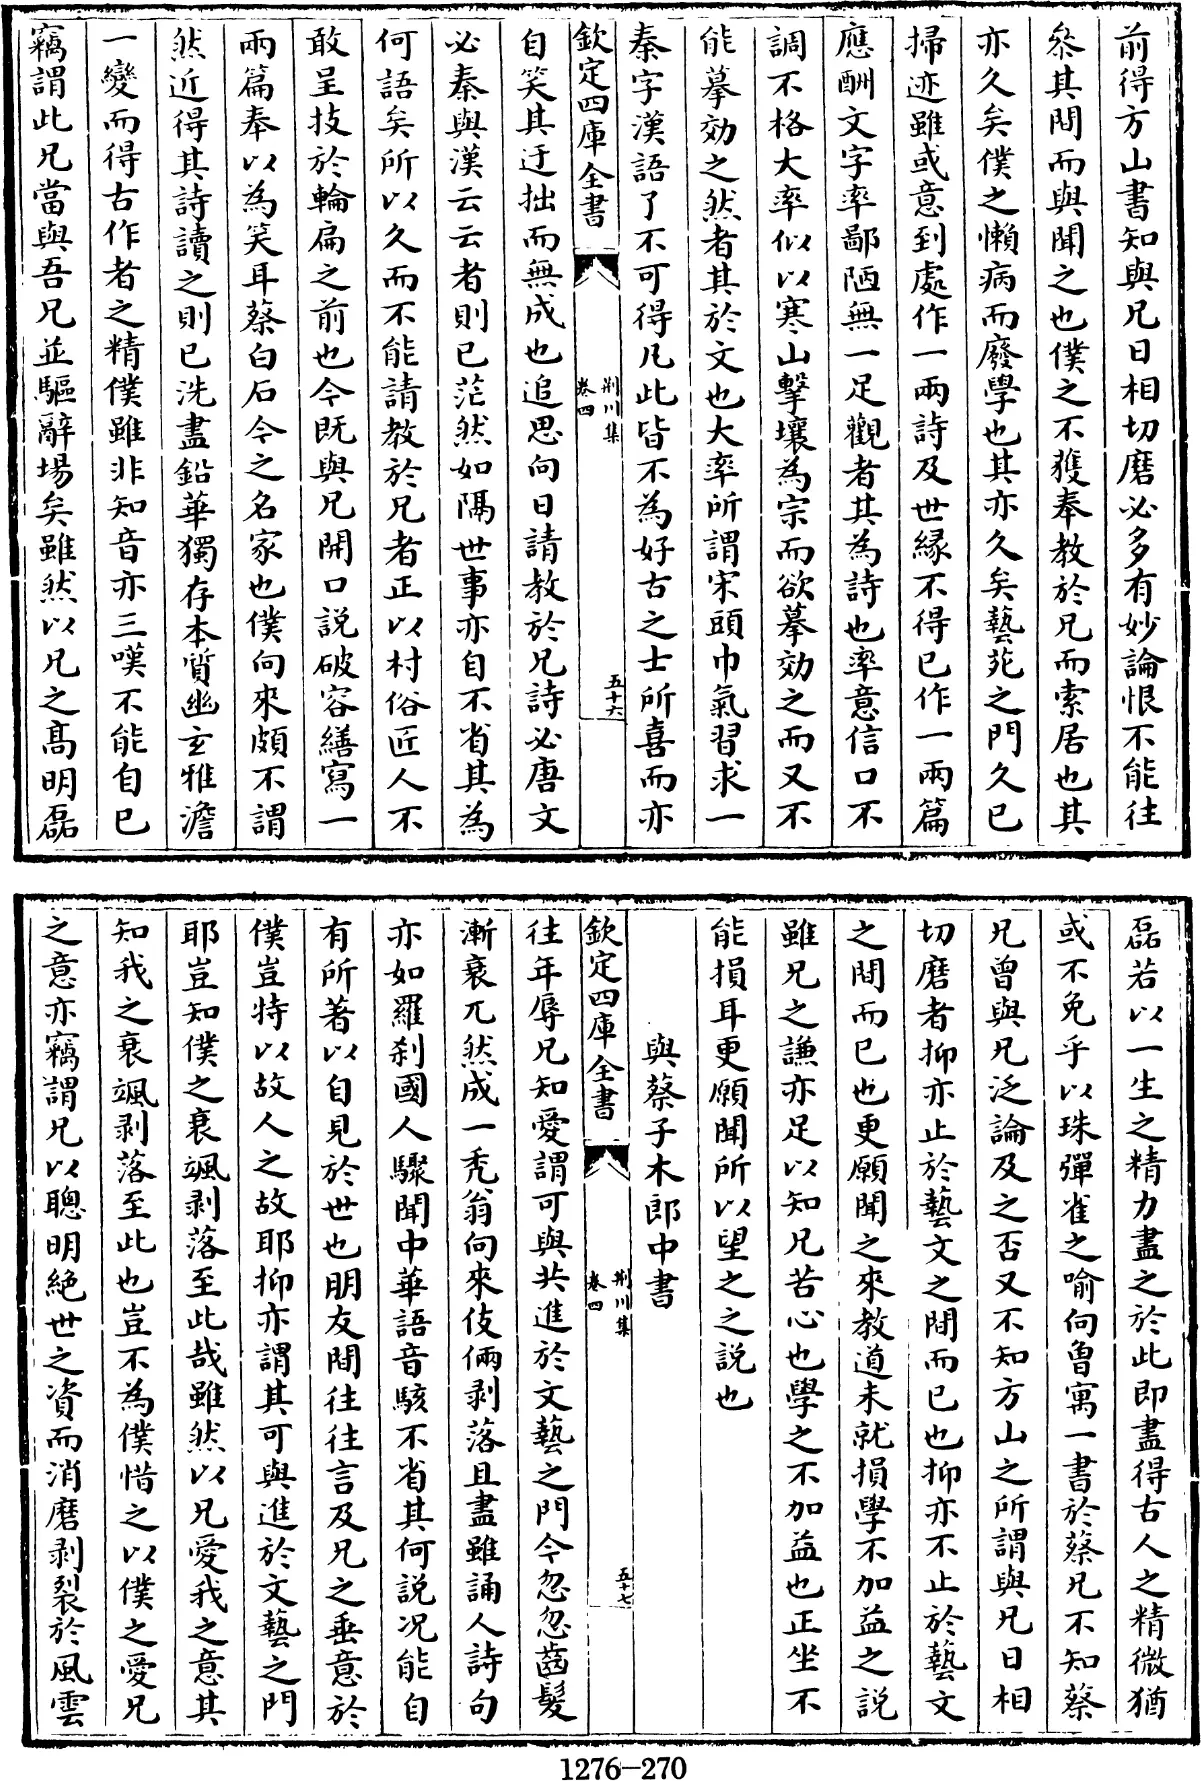 前得方山書知與兄日相切磨必多有妙論恨不能往
叅其間而與聞之也僕之不獲奉教於兄而索居也其
亦久矣僕之懶病而廢學也其亦久矣藝苑之門久已
掃迹雖或意到處作一兩詩及世縁不得已作一兩篇
應酬文字率鄙陋無一足觀者其為詩也率意信口不
調不格大率似以寒山擊壤為宗而欲摹効之而又不
能摹効之然者其於文也大率所謂宋頭巾氣習求一
秦字漢語了不可得凡此皆不為好古之士所喜而亦
欽定四庫全書
荆川集
卷四
五十六
自笑其迂拙而無成也追思向日請教於兄詩必唐文
必秦與漢云云者則已茫然如隔世事亦自不省其為
何語矣所以久而不能請教於兄者正以村俗匠人不
敢呈技於輪扁之前也今既與兄開口説破容繕寫一
兩篇奉以為笑耳蔡白石今之名家也僕向來頗不謂
然近得其詩讀之則已洗盡鉛華獨存本質幽玄雅澹
一變而得古作者之精僕雖非知音亦三嘆不能自已
竊謂此兄當與吾兄並驅辭場矣雖然以兄之髙明磊
磊若以一生之精力盡之於此即盡得古人之精微猶
或不免乎以珠彈雀之喻向魯寓一書於蔡兄不知蔡
兄曾與兄泛論及之否又不知方山之所謂與兄日相
切磨者抑亦止於藝文之間而已也抑亦不止於藝文
之間而已也更願聞之來教道未就損學不加益之説
雖兄之謙亦足以知兄苦心也學之不加益也正坐不
能損耳更願聞所以望之之説也
與蔡子木郎中書
欽定四庫全書
荆川集
卷四
五十七
往年辱兄知愛謂可與共進於文藝之門今忽忽齒髮
漸衰兀然成一秃翁向來伎倆剥落且盡雖誦人詩句
亦如羅刹國人驟聞中華語音駭不省其何説况能自
有所著以自見於世也朋友間往往言及兄之垂意於
僕豈特以故人之故耶抑亦謂其可與進於文藝之門
耶豈知僕之衰颯剥落至此哉雖然以兄愛我之意其
知我之衰颯剥落至此也豈不為僕惜之以僕之愛兄
之意亦竊謂兄以聰明絶世之資而消磨剥裂於風雲
1276-270